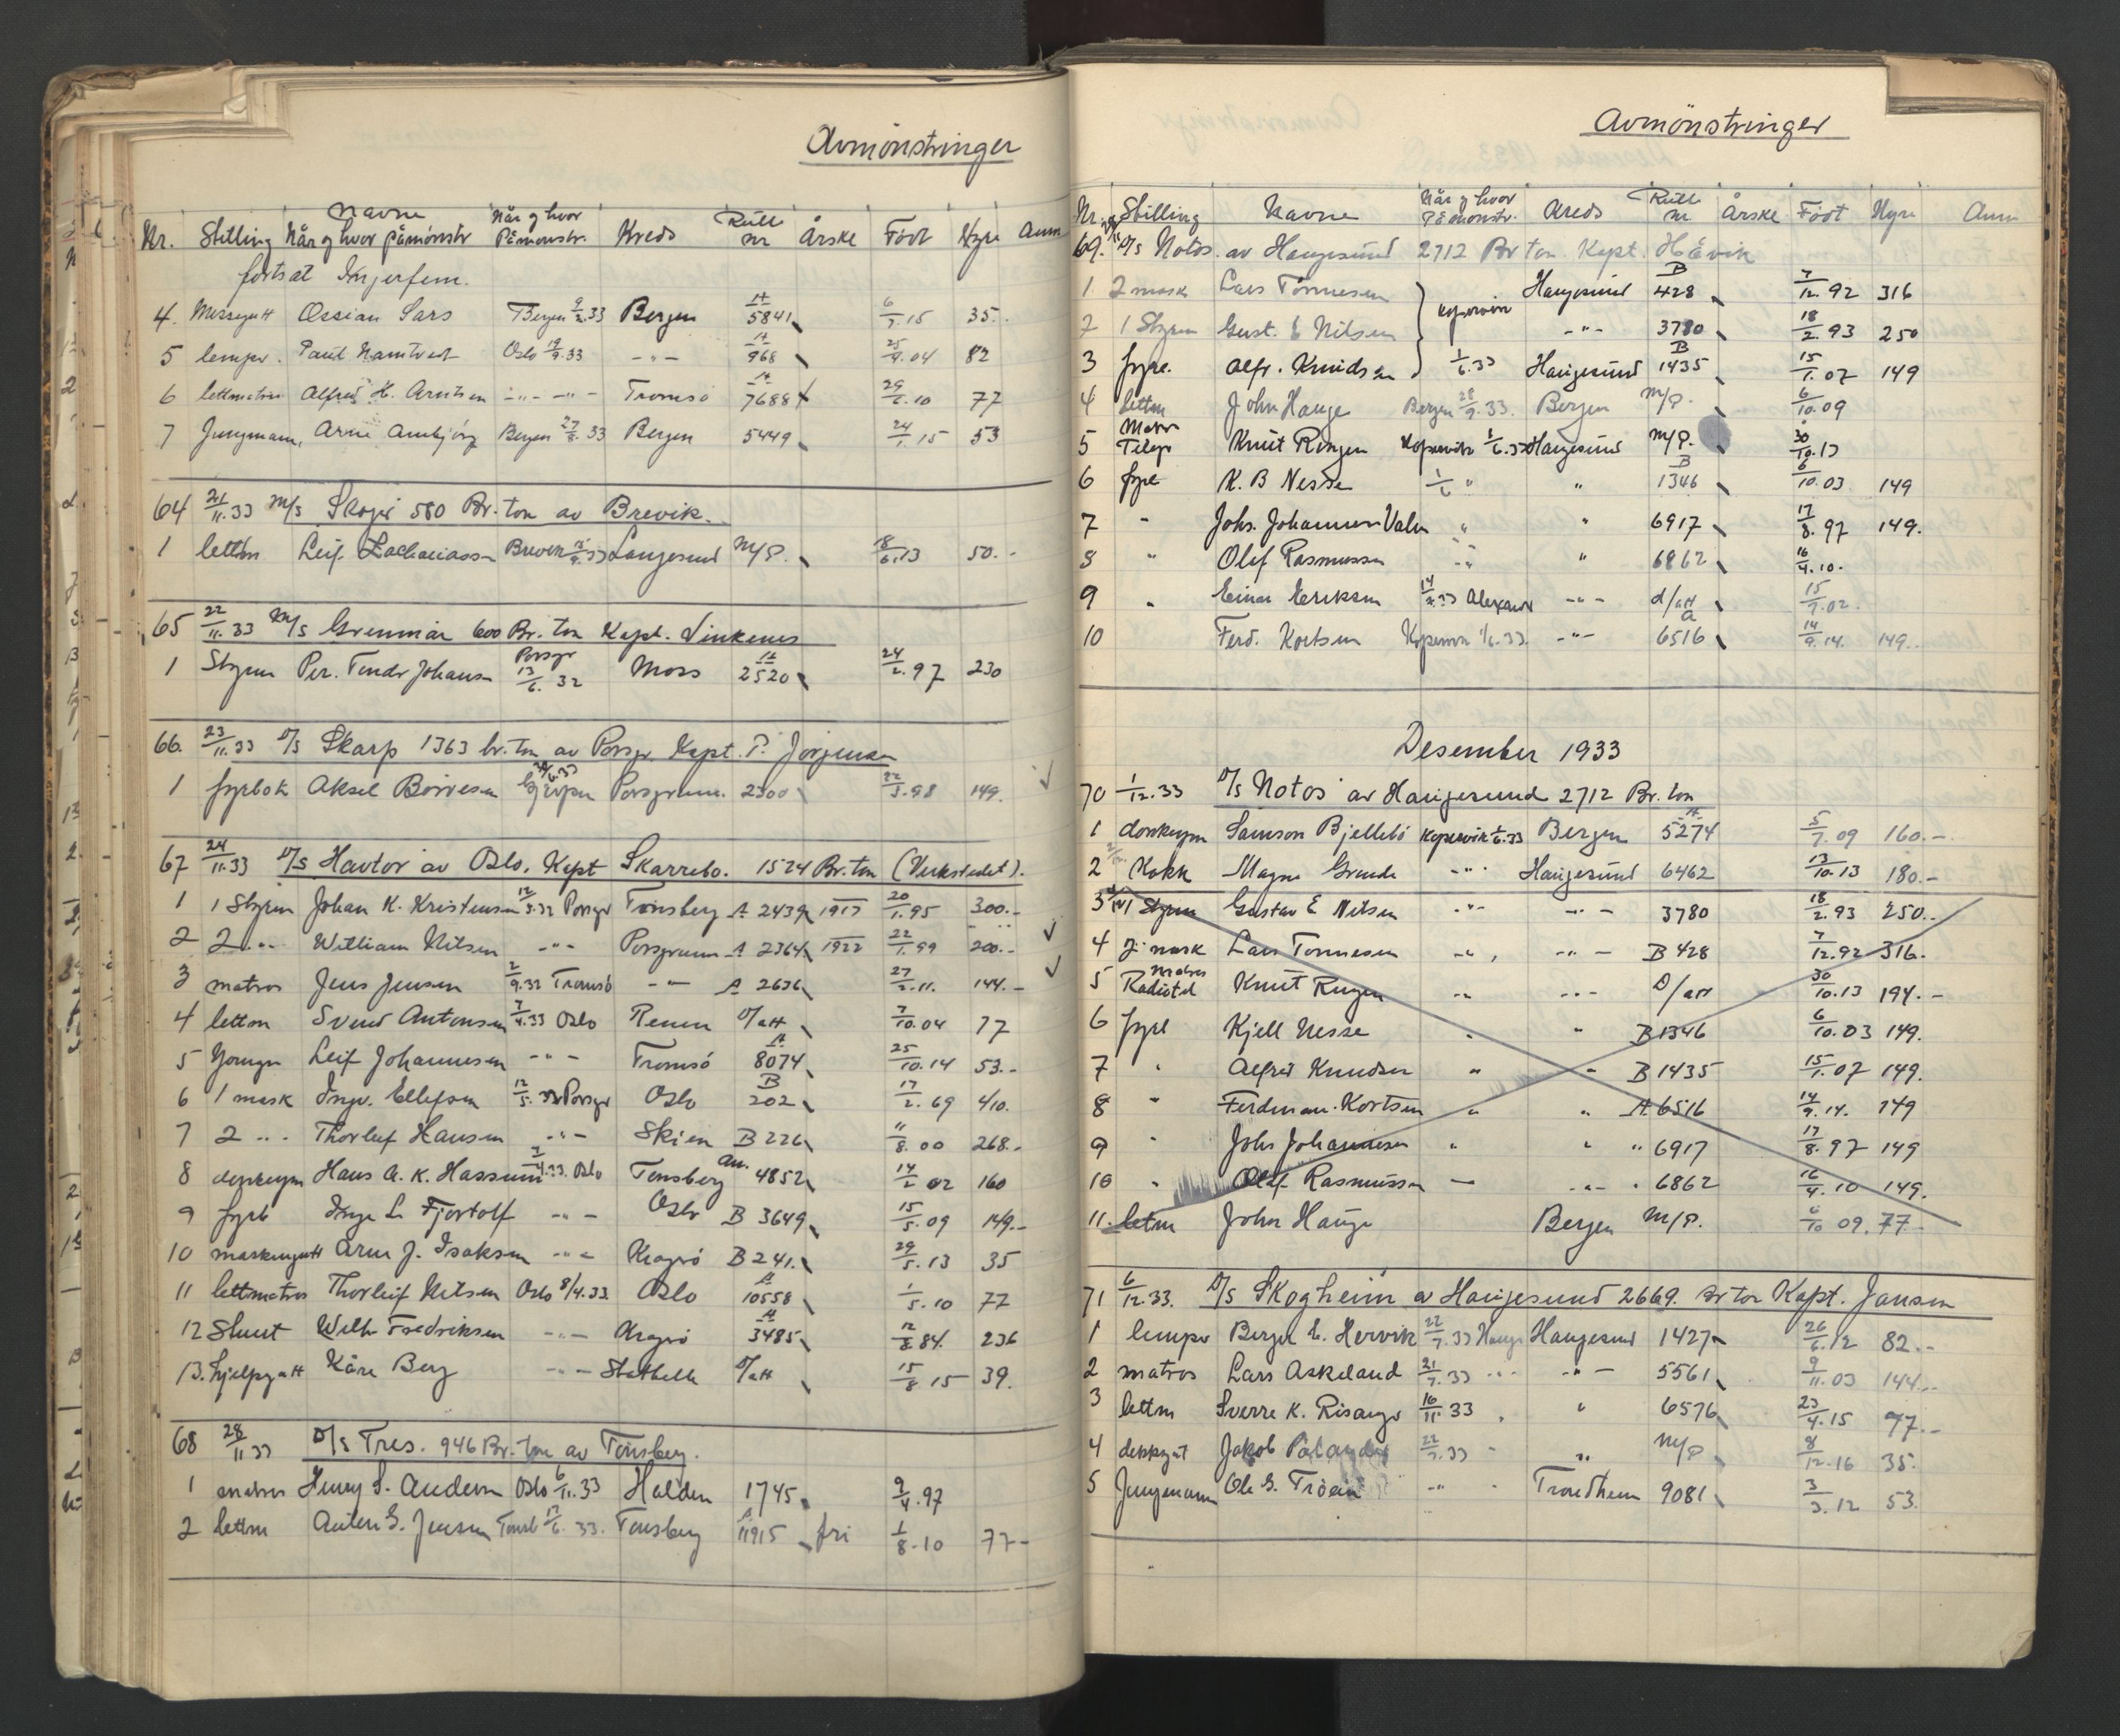 Avmönstringer
Nr. Stilling Navne Når og hvor påmönstr Når og hvor Påmönstr. Kreds Rulle nr Årskl Födt Hyre Anm
fortsat Ingerfem.
4. Messegutt Ossian Sars Bergen 9/2.33 Bergen A 5841 6/7.15 35.-
5 lemper. Paul Namtvedt Oslo 19/9.33 -"- A 968 25/9.04 82
6 lettmatros Alfred H. Arntsen -"- -"- Tromsö A 7688 29/6.10 77
7 Jungmann, Arne Ambjörg Bergen 27/8.33 Bergen 5449 24/1.15 53
64 21/11.33 M/S Skagi 580 Br. ton av Brevik.
1 lettm Leif Zachariassen Brevik 12/9.33 Langesund M/P. 18/6.13 50.-
65 22/11.33 M/S Grenmar 600 Br. ton Kapt. Vinkenes
1 Styrm Per. Johansen Porsgr 13/6.32 Moss A 2520 24/2.97 230
66. 23/11.33 D/S Skarp 1363 br. ton av Porsgr. Kapt. P. Jörgensen
1 fyrbök Aksel Börresen Gjerpen Porsgrunn. 2300 22/5.98 149. ✓
67 24/11.33 D/S Havtor av Oslo. Kapt Skarrebo. 1524 Br. ton (Verkstedet).
1 1 Styrm Johan K. Kristensen 12/5.32 Porsgr Tönsberg A 2439 1917 20/1.95 300.-
2 2 -"- William Nilsen -"- Porsgrunn A 2364 1922 22/1.99 200.- ✓
3 matros Jens Jensen 2/9.32 Tromsö -"- A 2636 27/2.11. 144.- ✓
4 lettm Svend Antonsen 7/4.33 Oslo Renen D/att 7/10.04 77
5 Youngm Leif Johannesen -"- Tromsö A 8074 25/10.14 53.-
6 1 mask Ingv. Ellefsen 12/5.32 Porsgr Oslo B 202 17/2.69 410.
7 2 -"- Thorleif Hansen -"- Skien B 226 11/8.00 268.-
8 donkeym Hans A. K. Hassum 7/4.33. Oslo Tönsberg An. 4852 14/2 02 160
9 fyrb Inge L. Fjörtoft -"- Oslo B 3649 15/5.09 149.-
10 maskingutt Arne J. Isaksen -"- Kragrö B 241. 29/5.13 35
11 lettmatros Thorleif Nilsen Oslo 8/4.33. Oslo A 10558 1/5.10 77
12 Stuert Wilh Fredriksen -"- Kragrö A 3485 12/8.84. 236
13. hjelpgutt Kåre Berg -"- Stathelle D/att 15/8 15 39.
68 28/11 33 D/S Tres. 946 Br. ton av Tönsberg.
1 matros Henry S. Andersen Oslo 6/11.33 Halden 1745 9/4.97
2 lettm Anton G. Jensen Tönsb 17/6.33. Tönsberg A 11915 fri 1/8.10 77-
Avmönstringer
Nr. Stilling Navne Når og hvor Påmönstr. Kreds Rulle nr Årskl Födt Hyre Anm
69. D/S Notos. av Haugesund 2712 Br ton Kapt. Håvik
1 2 mask Lars Tönnesen Haugesund B 428 7/12.92 316
2 1 Styrm Gust. E Nilsen Kopervik -"- 3780 18/2.93 250
3 fyrb. Alfr. Knudsen 1/6.33 Haugesund B 1435 15/1.07 149
4 lettm John Hauge Bergen 28/9.33. Bergen M/P. 6/10.09
5 Matr Telegr Knut Ringen Kopervik 1/6.33 Haugesund M/P. 30/10.13
6 fyrb K. B Nesse 1/6 " " B 1346 6/10.03 149
7 " Johs. Johannesen Valen " " 6917 17/8.97 149.
8 " Olef Rasmussen -"- " 6862 16/4.10.
9 " Einar Eriksen 14/2.33 Alexandr -"- d/att 15/7.02.
10 Ferd. Kortsen Kopervik 1/6.33. -"- A 6516 14/9.14. 149.
Desember 1933
70 1/12.33 D/S Notos av Haugesund 2712 Br. ton
1 donkeym Samson Bjellebö Kopervik 1/6.33 Bergen A 5274 5/7.09 160.-
2 Kokk Magne Grande -"- Haugesund 6462 13/10.13 180.-
3 1 Styrm Gustav E Nilsen -"- -"- 3780 18/2.93 250.-
4 2 mask Lars Tönnesen -"- -"- B 428 7/12.92 316.-
5 Matros Radiotel Knut Ringen -"- -"- D/att 30/10.13 194.-
6 fyrb Kjell Nesse " " B 1346 6/10.03 149.
7 " Alfred Knudsen " " B 1435 15/1.07 149.
8 " Ferdinan. Kortsen " " A 6516 14/9.14. 149
9 " Johs Johannesen " " " 6917 17/8.97 149
10 " Olef Rasmussen — -"- " 6862 16/4.10 149.
11. letm John Hauge Bergen M/P. 6/10 09. 77-
71 6/12.33. D/S Skogheim av Haugesund 2669. Br ton Kapt. Jansen
1 lemper Berger E. Hervik 22/7.33 Hauge Haugesund 1427 26/6.12 82.-
2 matros Lars Askeland 21/7.33 -"- -"- 5561 9/11.03 144.-
3 lettm Sverre K. Risanger 16/11.33 " " 6576 23/4.15 77.-
4 dekkgut Jakob 22/7.33 " " M/P 8/12.16 35.
5 Jungmann Ole G. Tröen -"- Trondheim 9081 3/3.12 53.